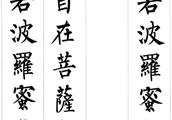 若波羅蜜
自在菩薩
若波羅蜜